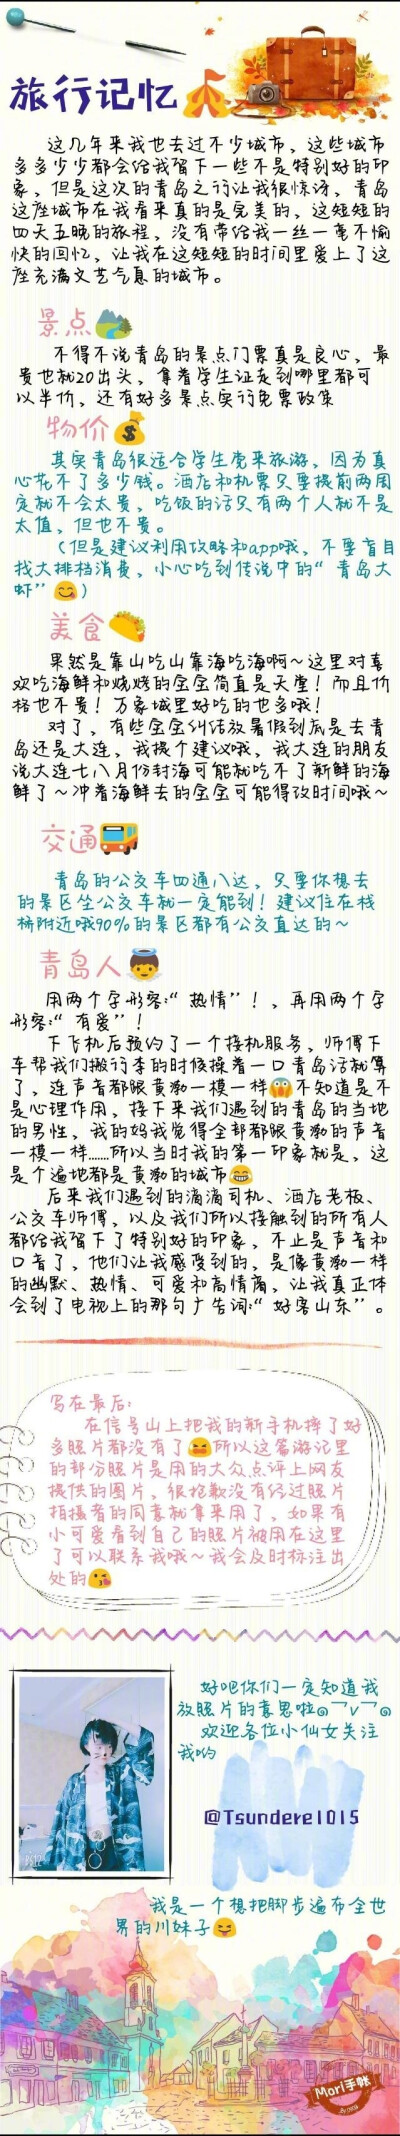 旅行记忆
这几年来我也去过不少城市，这些城市
多多少少都会给我留下一些不是特别好的印
象，但是这次的青岛之行让我很惊讶，青岛
这座城市在我看来真的是完美的，这短短的
四天五晚的旅程，没有带给我一丝一毫不愉
快的回忆，让我在这短短的时间里爱上了这
座充满文艺气息的城市。
景点
不得不说青岛的景点门票真是良心，最
贵也就20出头，拿着学生证走到哪里都可
以半价，还有好多景点实行免票政策
物价
其实青岛很适合学生党来旅游，因为真
心花不了多少钱。酒店和机票只要提前两周
定就不会太贵，吃饭的话只有两个人就不是
太值，但也不贵。
（但是建议利用攻略和app哦，不要盲目
找大排档消费，小心吃到传说中的“青岛大
虾”😋）
美食
果然是靠山吃山靠海吃海啊～这里对喜
欢吃海鲜和烧烤的金金简直是天堂！而且价
格也不贵！万象城里好吃的也多哦！
对了，有些金金纠结放暑假到底是去青
岛还是大连，我提个建议哦，我大连的朋友
说大连七八月份封海可能就吃不了新鲜的海
鲜了～冲着海鲜去的金金可能得改时间哦～
交通
青岛的公交车四通八达，只要你想去
的景区坐公交车就一定能到！建议住在栈
桥附近哦90%的景区都有公交直达的～
青岛人
用两个字形容：“热情”！，再用两个字
形容：“有爱”！
下飞机后预约了一个接机服务，师傅下
车帮我们搬行李的时候操着一口青岛话就算
了，连声音都跟黄渤一模一样😱不知道是不
是心理作用，接下来我们遇到的青岛的当地
的男性，我的妈我觉得全部都跟黄渤的声音
一模一样……所以当时我的第一印象就是，这
是个遍地都是黄渤的城市😂
后来我们遇到的滴滴司机、酒店老板、
公交车师傅，以及我们所以接触到的所有人
都给我留下了特别好的印象，不止是声音和
口音了，他们让我感受到的，是像黄渤一样
的幽默、热情、可爱和高情商，让我真正体
会到了电视上的那句广告词：“好客山东”。
写在最后：
在信号山上把我的新手机摔了好
多照片都没有了😫所以这篇游记里
的部分照片是用的大众点评上网友
提供的图片，很抱歉没有经过照片
拍摄者的同意就拿来用了，如果有
小可爱看到自己的照片被用在这里
了可以联系我哦～我会及时标注出
处的😘
好吧你们一定知道我
放照片的意思啦๑乛v乛๑
欢迎各位小仙女关注
我哟
@Tsundere1015
我是一个想把脚步遍布全世
界的川妹子😝
Mori手帐